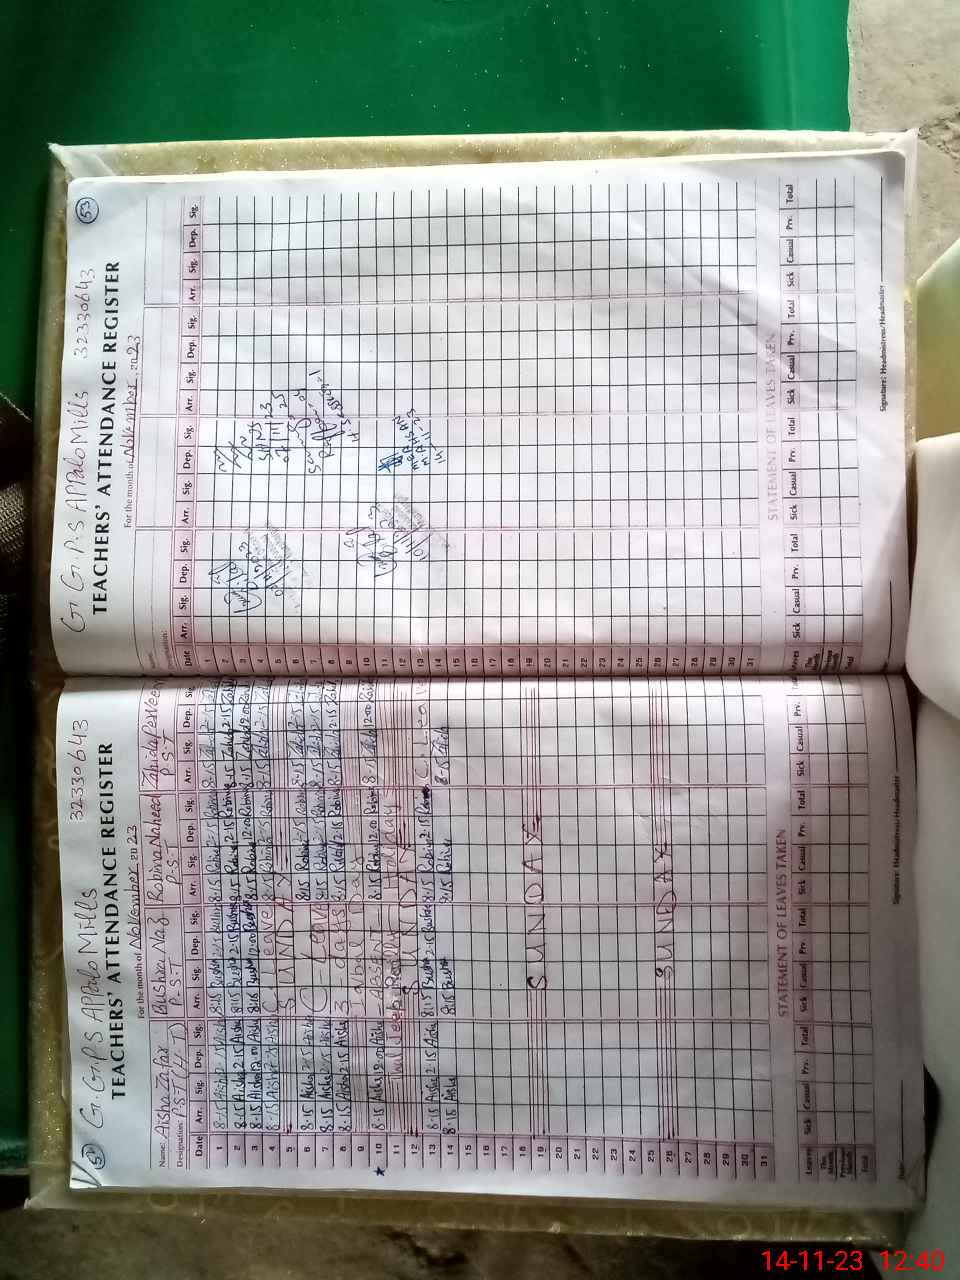 52 G.G.P.S APPalo Mills 32330643
TEACHERS' ATTENDANCE REGISTER
For the month of November 2023
Name: Aisha Zafar Bushra Naz Robina Naheed Zahida Perveen
Designation: P.S.T (H.T) P.S.T P.S.T P.S.T
Date Arr. Sig. Dep. Sig. Arr. Sig. Dep. Sig. Arr. Sig. Dep. Sig. Arr. Sig. Dep. Sig.
1 8-15 Aisha 2-15 Aisha 8-15 Bushra 2-15 Bushra 8-15 Robina 2-15 Robina 8-15 Zahida 2-15
2 8-15 Aisha 2-15 Aisha 8-15 Bushra 2-15 Bushra 8-15 Robina 2-15 Robina 8-15 Zahida 2-15
3 8-15 Aisha 12-00 Aisha 8-15 Bushra 12-00 Bushra 8-15 Robina 12-00 Robina 8-15 Zahida 12-00
4 8-15 Aisha 2-15 Aisha C-Leave 8-15 Robina 2-15 Robina 8-15 Zahida 2-15
5 SUNDAY
6 8-15 Aisha 2-15 Aisha C-Leave 8-15 Robina 2-15 Robina 8-15 Zahida 2-15
7 8-15 Aisha 2-15 Aisha 3-days 8-15 Robina 2-15 Robina 8-15 Zahida 2-15
8 8-15 Aisha 2-15 Aisha 8-15 Robina 2-15 Robina 8-15 Zahida 2-15
9 Iqbal Day
10 8-15 Aisha 12-00 Aisha ABSENT 8-15 Robina 12-00 Robina 8-15 Zahida 12-00
11 Holiday
12 SUNDAY
13 8-15 Aisha 2-15 Aisha 8-15 Bushra 2-15 Bushra 8-15 Robina 2-15 Robina C-Lea
14 8-15 Aisha 8-15 Bushra 8-15 Robina 8-15 Zahida
15
16
17
18
19 SUNDAY
20
21
22
23
24
25
26 SUNDAY
27
28
29
30
31
STATEMENT OF LEAVES TAKEN
Leaves Sick Casual Prv. Total Sick Casual Prv. Total Sick Casual Prv. Total Sick Casual Prv.
This Month
Previous Month
Total
Signature: Headmistress/ Headmaster
G.G.P.S APPalo Mills 32330643 53
TEACHERS' ATTENDANCE REGISTER
For the month of November 2023
Date Arr. Sig. Dep. Sig. Arr. Sig. Dep. Sig. Arr. Sig. Dep. Sig. Arr. Sig. Dep. Sig.
1
2
3
4
5
6
7
8
9
10
11
12
13
14
15
16
17
18
19
20
21
22
23
24
25
26
27
28
29
30
31
STATEMENT OF LEAVES TAKEN
Leaves Sick Casual Prv. Total Sick Casual Prv. Total Sick Casual Prv. Total Sick Casual Prv. Total
This Month
Previous Month
Total
Signature: Headmistress/Headmaster
14-11-23 12:40